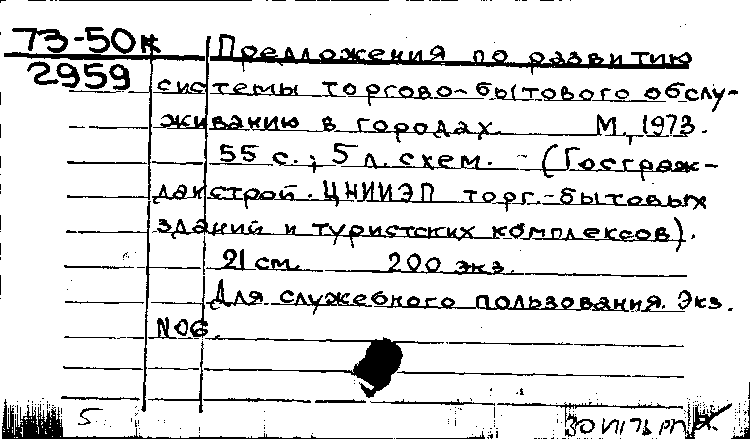 73-50к
2959
Предложения по развитию
системы торгово-бытового обслу-
живанию в городах. М., 1973.
55 с.; 5 л. схем. - (Гограж-
данстрой. ЦНИИЭП торг.-бытовых
зданий и туристских комплексов).
21 см. 200 экз.
Для служебного пользования. Экз.
№06.
5